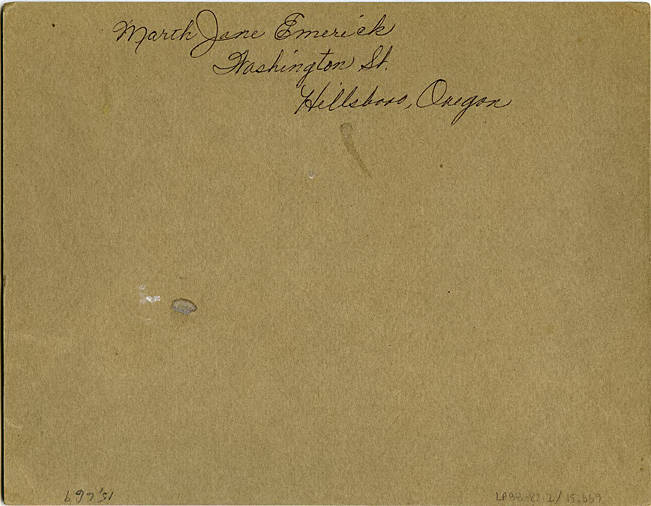 Marth Jane Emerick
Washington St.
Hillsboro, Oregon
15,669
15,669